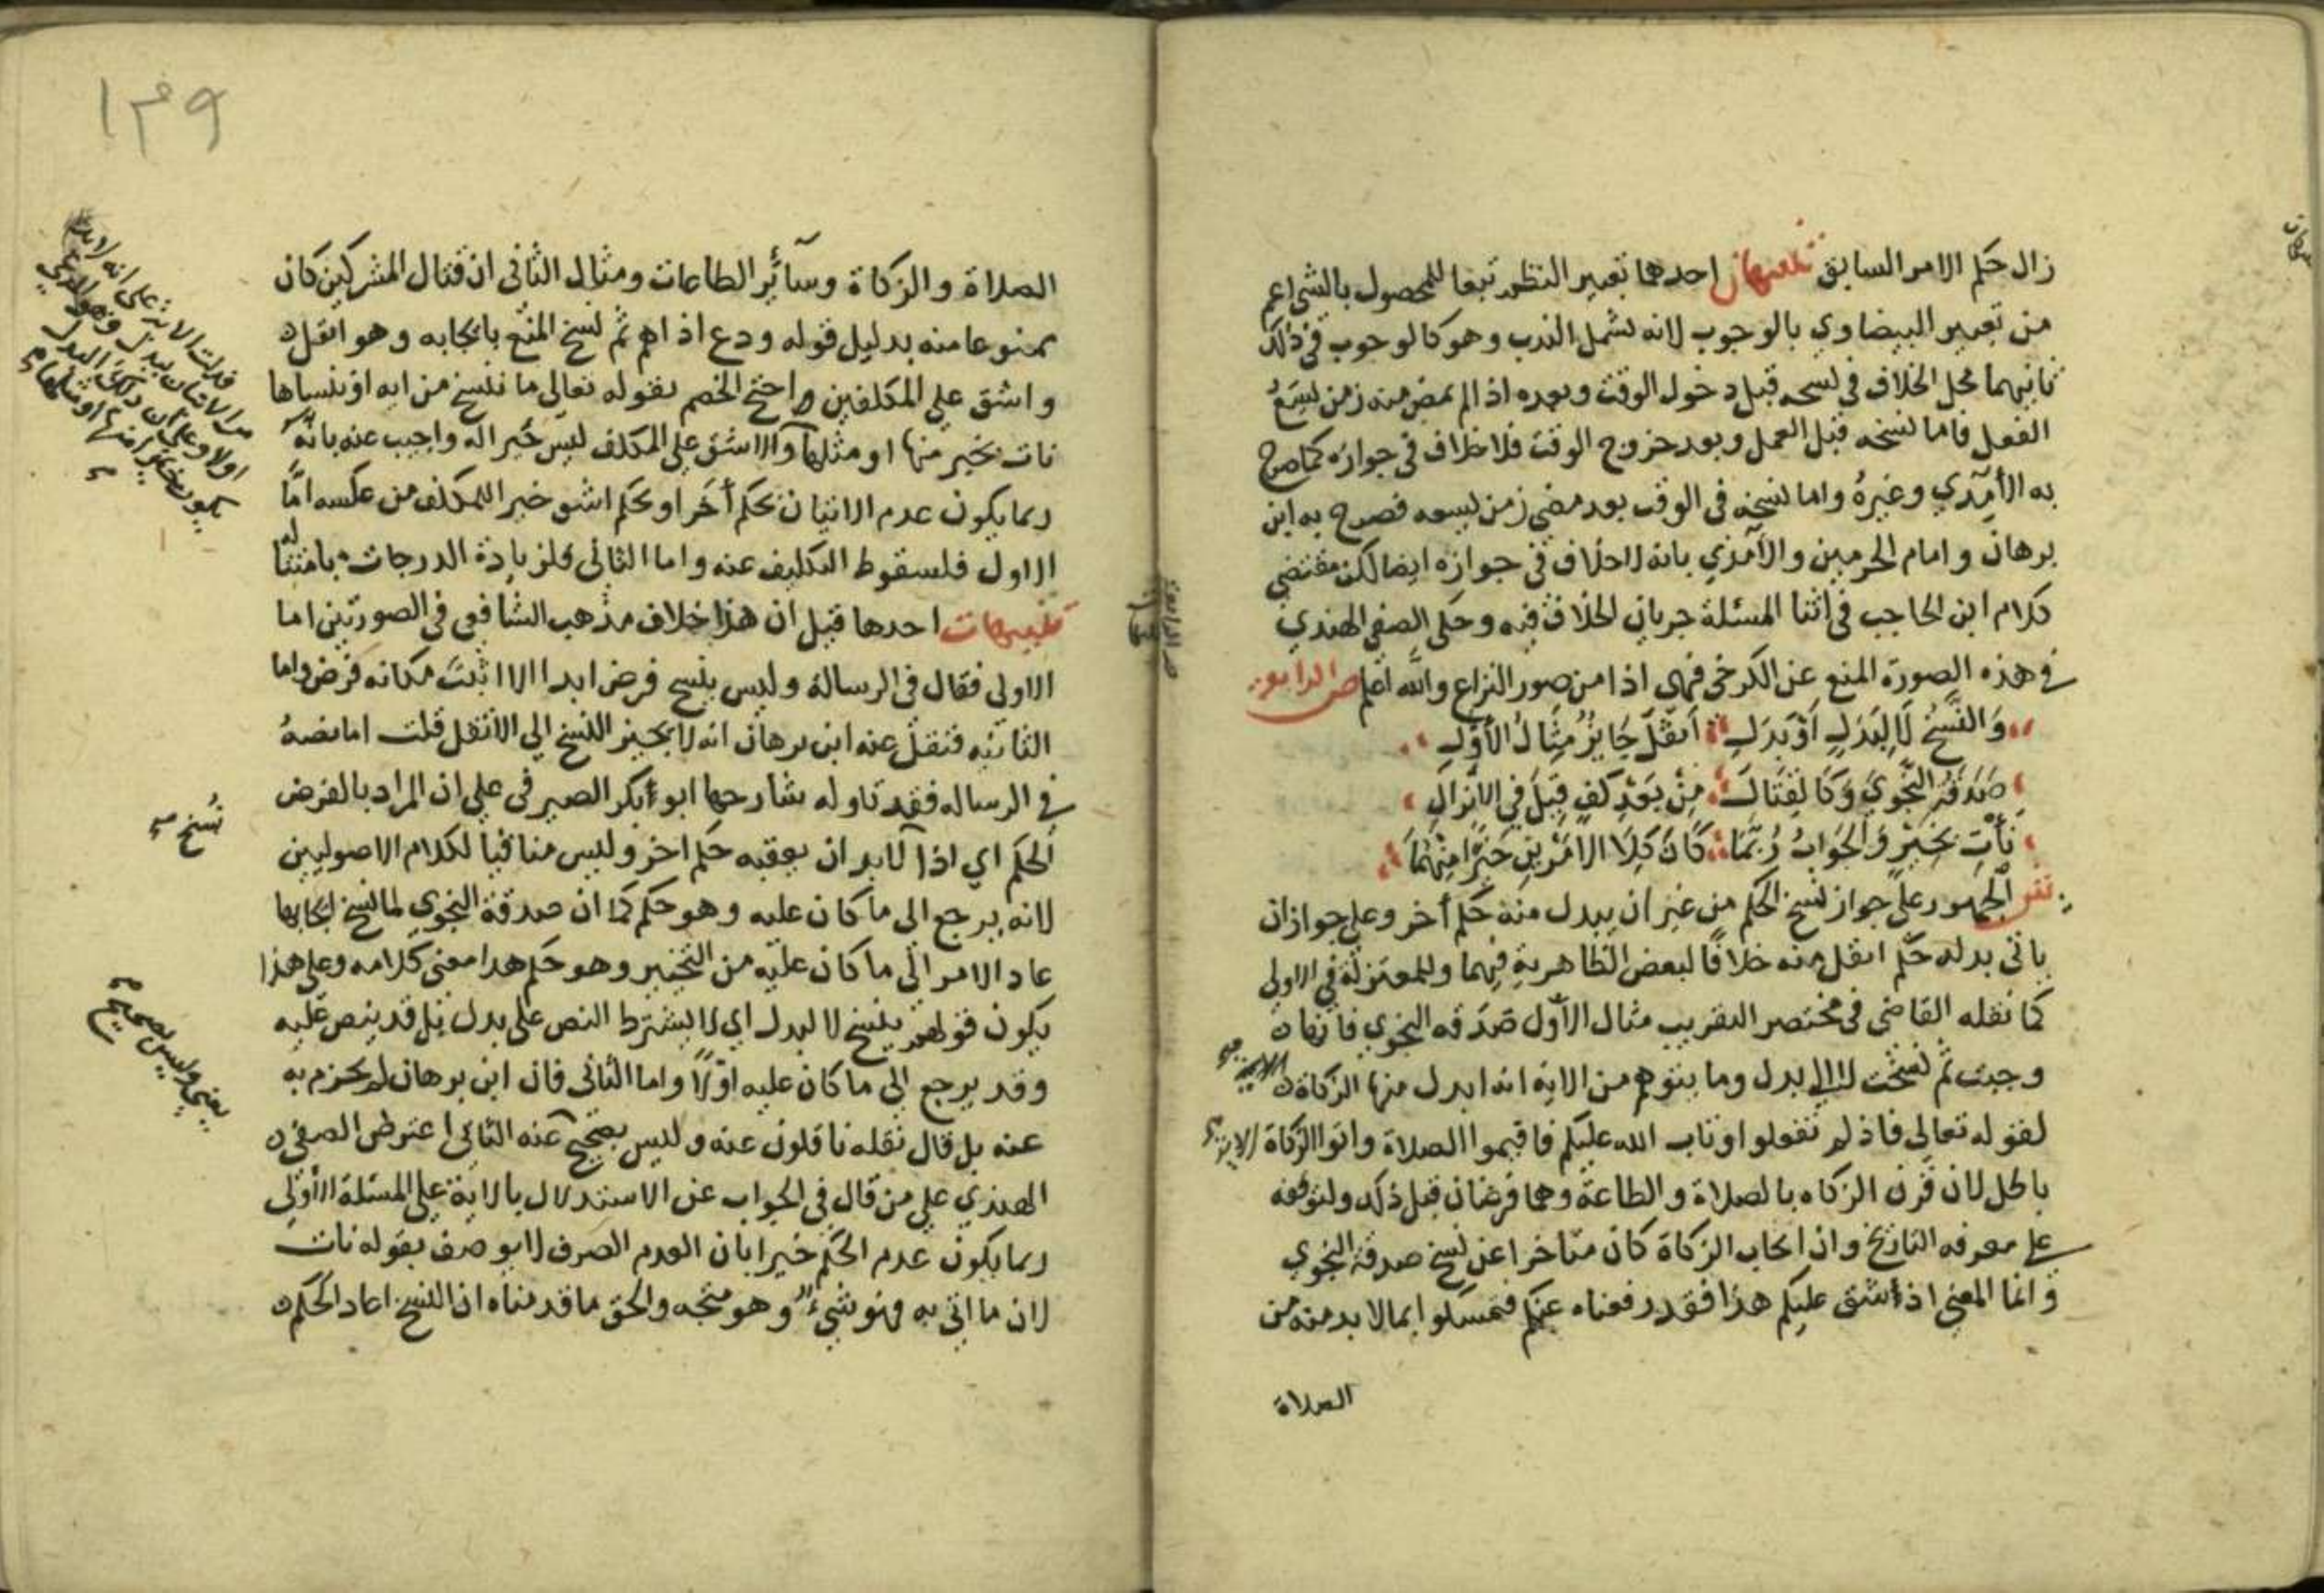 زال حكم الامر السابق تنبيهان احدهما تعبير النظم تبعا للمحصول بالشي اعم
من تعبير البيضاوي بالوجوب لانه يشمل الندب وهو كالوجوب في ذلك
ثانيهما محل الخلاف في نسخه قبل دخول الوقت وبعده اذا لم يمض منه زمن يسع
الفعل فاما نسخه قبل العمل وبعد خروج الوقت فلا خلاف في جوازه كما صرح
به الآمدي وغيره واما نسخه في الوقت بعد مضي زمن يسعه فصرح به ابن
برهان وامام الحرمين والآمدي بانه لا خلاف في جوازه ايضا لكن مقتضي
كلام ابن الحاجب في اثنا المسئلة جريان الخلاف فيه وحكى الصفي الهندي
في هذه الصورة المنع عن الكرخي فهي اذا من صور النزاع والله اعلم ص الرابعة
والنسخ لا لبدل او بدل اثقل جايز مثال الاول
صدقة النجوي وكالقتال من بعد كف قيل في الانزال
نات بخير والجواب ربما كان كلا الامرين خيرا منهما
ش الجمهور على جواز نسخ الحكم من غير ان يبدل منه حكم أخر وعلى جواز ان
ياتي بدله حكم اثقل منه خلافا لبعض الظاهرية فيهما وللمعتزلة في الاولى
كما نقله القاضي في مختصر التقريب مثال الأول صدقة النجوي فانها
وجبت ثم نسخت لا الي بدل وما يتوهم من الاية انه ابدل منها الزكاة
لقوله تعالى فاذ لم تفعلوا وتاب الله عليكم فاقيموا الصلاة واتوا الزكاة الاية
باطل لان قرن الزكاه بالصلاة والطاعة وهما فرضان قبل ذلك ولتوقفه
على معرفه التاريخ وان ايجاب الزكاة كان متاخرا عن نسخ صدقة النجوي
وانما المعنى اذ أشق عليكم هذا فقد رفعناه عنكم فتمسكوا بما لا بد منه من
الصلاة
١٣٩
الصلاة والزكاة وسآئر الطاعات ومثال الثاني ان قتال المشركين كان
ممنوعا منه بدليل قوله ودع اذاهم ثم نسخ المنع بايجابه وهو اثقل
واشق علي المكلفين واحتج الخصم بقوله تعالى ما ننسخ من ايه او ننساها
نات بخير منها او مثلها والاشق علي المكلف ليس خيرا له واجيب عنه بانه
ربما يكون عدم الاتيان بحكم أخر او بحكم اشق خير اللمكلف من عكسه امّا
الاول فلسقوط التكليف عنه واما الثاني فلزيادة الدرجات بامتثاله
تنبيهات احدها قيل ان هذا خلاف مذهب الشافعي في الصورتين اما
الاولى فقال في الرسالة وليس ينسخ فرض ابدا الا اثبت مكانه فرض واما
الثانيه فنقل عنه ابن برهان انه لا يجيز النسخ الي الاثقل قلت اما نصه
في الرساله فقد تاوله شارحها ابو بكر الصيرفي على ان المراد بالفرض
الحكم اي اذا لا بد ان يعقبه حكم اخر وليس منافيا لكلام الاصوليين
لانه يرجع الى ما كان عليه وهو حكم كما ان صدقة النجوي لما نسخ ايجابها
عاد الامر الى ما كان عليه من التخيير وهو حكم هذا معنى كلامه وعلى هذا
يكون قولهم ينسخ لا لبدل اي لا يشترط النص على بدل بل قد ينص عليه
وقد يرجع الي ما كان عليه اولًا واما الثاني فان ابن برهان لم يجزم به
عنه بل قال نقله ناقلون عنه وليس بصحيح عنه الثاني اعترض الصفي
الهندي على من قال في الجواب عن الاستدلال بالاية على المسئلة الأولى
ربما يكون عدم الحكم خيرا بان العدم الصرف لا يوصف بقوله نات
لان ما اتي به فهو شيء وهو متجه والحق ما قدمناه ان النسخ اعاد الحكم
فدلت الاية على انه لا بد
نسخ
وليس بصحيح